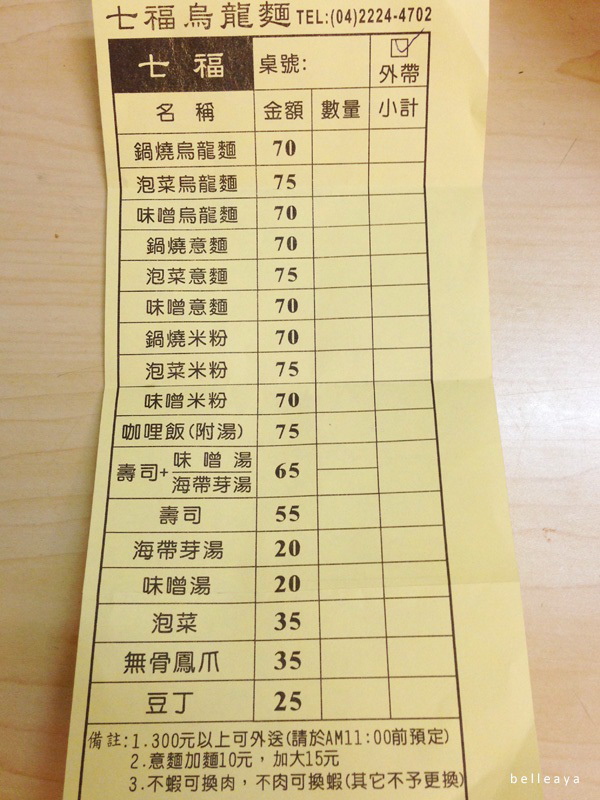 七福烏龍麵 TEL:(04)2224-4702
七福 桌號: 外帶
名稱 金額 數量 小計
鍋燒烏龍麵 70
泡菜烏龍麵 75
味噌烏龍麵 70
鍋燒意麵 70
泡菜意麵 75
味噌意麵 70
鍋燒米粉 70
泡菜米粉 75
味噌米粉 70
咖哩飯(附湯) 75
壽司+味噌湯 65
海帶芽湯
壽司 55
海帶芽湯 20
味噌湯 20
泡菜 35
無骨鳳爪 35
豆丁 25
備註:1.300元以上可外送(請於AM11:00前預定)
2.意麵加麵10元，加大15元
3.不蝦可換肉，不肉可換蝦(其它不予更換)
belleaya